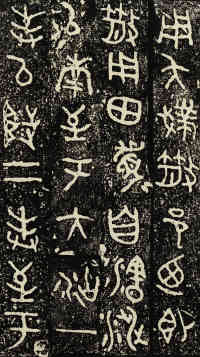 用夨撲散邑迺即
散用田眉自瀗涉
以南至于大沽一
封以陟二封至于